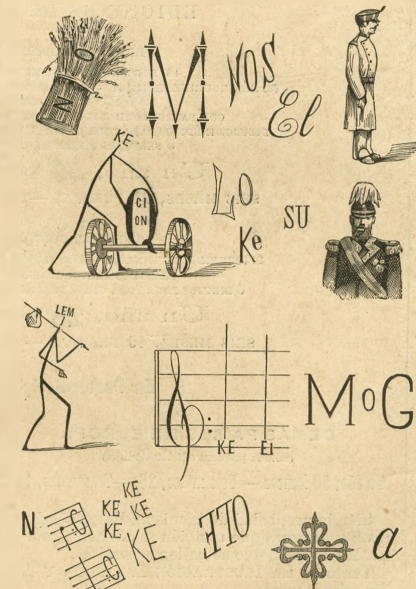 NO M NOS El
KE
CI
ON
LO
Ke SU
LEM
KE EI MoG
N KE
KE KE
KE KE OLE a